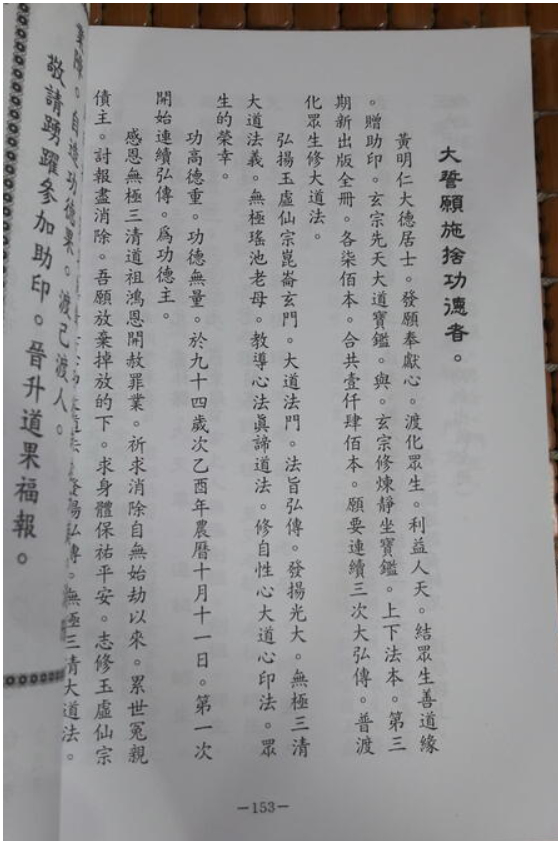 大誓願施捨功德者。
黃明仁大德居士。發願奉獻心。渡化眾生。利益人天。結眾生善道緣
。贈助印。玄宗先天大道寶鑑。與。玄宗修煉靜坐寶鑑。上下法本。第三
期新出版全冊。各柒佰本。合共壹仟肆佰本。願要連續三次大弘傳。普渡
化眾生修大道法。
弘揚玉虛仙宗崑崙玄門。大道法門。法旨弘傳。發揚光大。無極三清
大道法義。無極瑤池老母。教導心法眞諦道法。修自性心大道心印法。眾
生的榮幸。
功高德重。功德無量。於九十四歲次乙酉年農曆十月十一日。第一次
開始連續弘傳。爲功德主。
感恩無極三清道祖鴻恩開赦罪業。祈求消除自無始劫以來。累世冤親
債主。討報盡消除。吾願放棄掉放的下。求身體保祐平安。志修玉虛仙宗
弘傳。無極三清大道法。
業障。自造功德果。渡己渡人。
敬請踴躍參加助印。晉升道果福報。
—153—